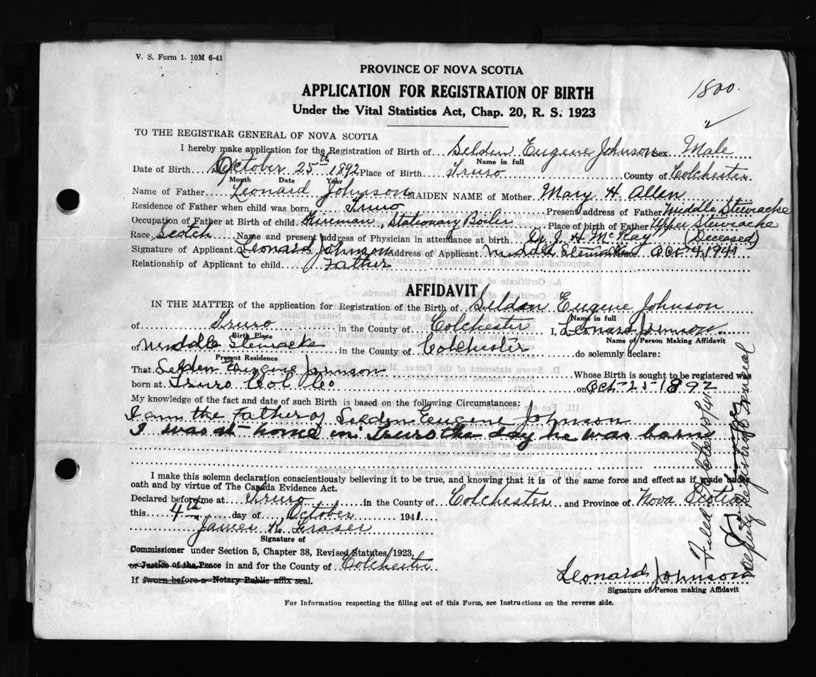 V. S. Form 1. 10M 6-41
PROVINCE OF NOVA SCOTIA
APPLICATION FOR REGISTRATION OF BIRTH
1800.
Under the Vital Statistics Act, Chap. 20, R. S. 1923
TO THE REGISTRAR GENERAL OF NOVA SCOTIA
I hereby make application for the Registration of Birth of Selden Eugene Johnson Sex Male
Name in full
Date of Birth October 25th 1892 Place of Birth Truro County of Colchester
Month Date Year
Name of Father Leonard Johnson MAIDEN NAME of Mother Mary H Allen
Residence of Father when child was born Truro Present address of Father Middle Stewiacke
Occupation of Father at Birth of child. Fireman, Stationary Boiler Place of birth of Father Upper Stewiacke
Race Scotch Name and present address of Physician in attendance at birth Dr J. H McKay (Deceased)
Signature of Applicant Leonard Johnson Address of Applicant Middle Stewiacke Oct 4 1941
Relationship of Applicant to child Father
AFFIDAVIT
IN THE MATTER of the application for Registration of the Birth of Seldon Eugene Johnson
Name in full
of Truro in the County of Colchester I, Leonard Johnson
Birth Place Name of Person Making Affidavit
of Middle Stewiacke in the County of Colchester do solemnly declare:
Present Residence
That Selden Eugene Johnson Whose Birth is sought to be registered was
born at Truro Col Co on Oct-25-1892
My knowledge of the fact and date of such Birth is based on the following Circumstances:
I am the Father of Selden Eugene Johnson
I was at home in Truro the day he was born
I make this solemn declaration conscientiously believing it to be true, and knowing that it is of the same force and effect as if made under
oath and by virtue of The Canada Evidence Act.
Declared before me at Truro in the County of Colchester and Province of Nova Scotia
this 4th day of October 1941
James K. Fraser
Signature of
Commissioner under Section 5, Chapter 38, Revised Statutes, 1923,
or Justice of the Peace in and for the County of Colchester
If sworn before a Notary Public affix seal.
Leonard Johnson
Signature of Person making Affidavit
For Information respecting the filling out of this Form, see Instructions on the reverse side.
Filed October
Deputy Registrar General